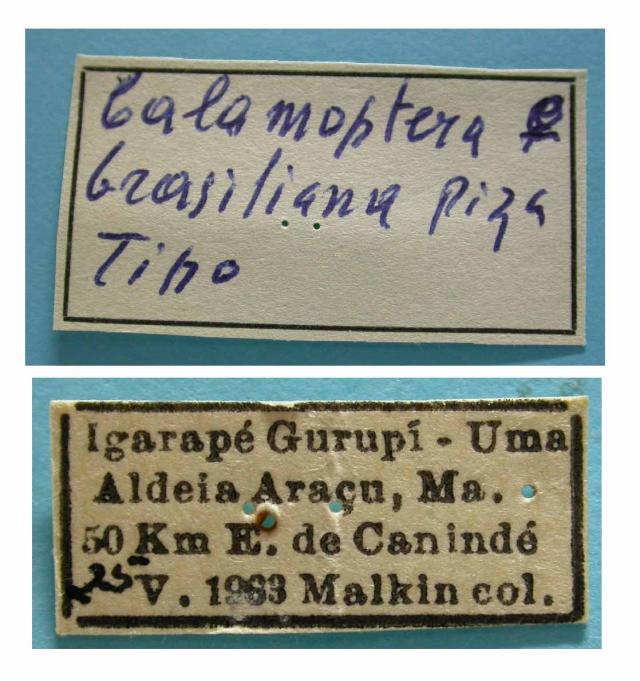 Calamoptera ♀
brasiliana Piza
Tipo
Igarapé Gurupí - Uma
Aldeia Araçu, Ma.
50 Km E. de Canindé
25 V. 1963 Malkin col.